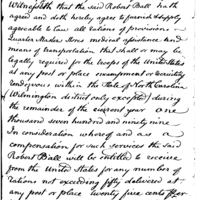 Witnesseth that the said Robert Ball hath
agreed and doth hereby agree to furnish & supply
agreeable to law all rations of provisions
Quarter Master Stores medical assistance and
means of transportation that shall or may be
legally required for the troops of the United States
at any post or place encampment or
rendezvous within the State of North Carolina
(Wilmington district only excepted) during
the remainder of the current year one
thousand seven hundred and ninety nine.
In consideration whereof and as a
compensation for such services the said
Robert Ball will be entitled to receive
from the United States for any number of
rations not exceeding fifty delivered at
any post or place twenty five cents